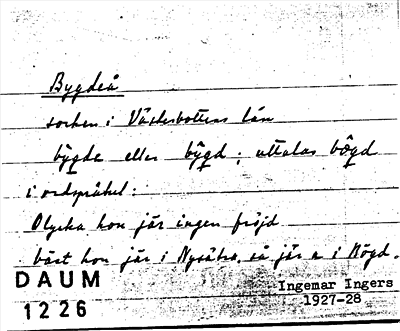 Bygdeå
socken i Västerbottens län
bygde eller bygd; uttalas bögd
i ordspråket:
Olycka hon jär ingen fröjd
bäst hon jär i Nysätra, så jär n i Bögd.
DAUM
1226
Ingemar Ingers
1927-28